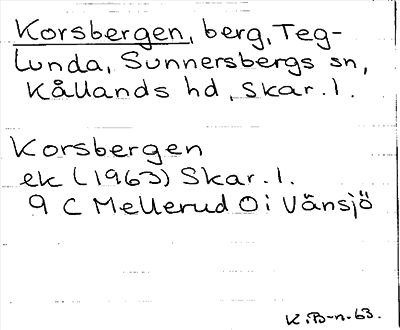 Korsbergen, berg, Teg-
lunda, Sunnersbergs sn,
Kållands hd, Skar. l.
Korsbergen
ek (1963) Skar. l.
9 C Mellerud Ö i Vänsjö
K. B-n. 63.